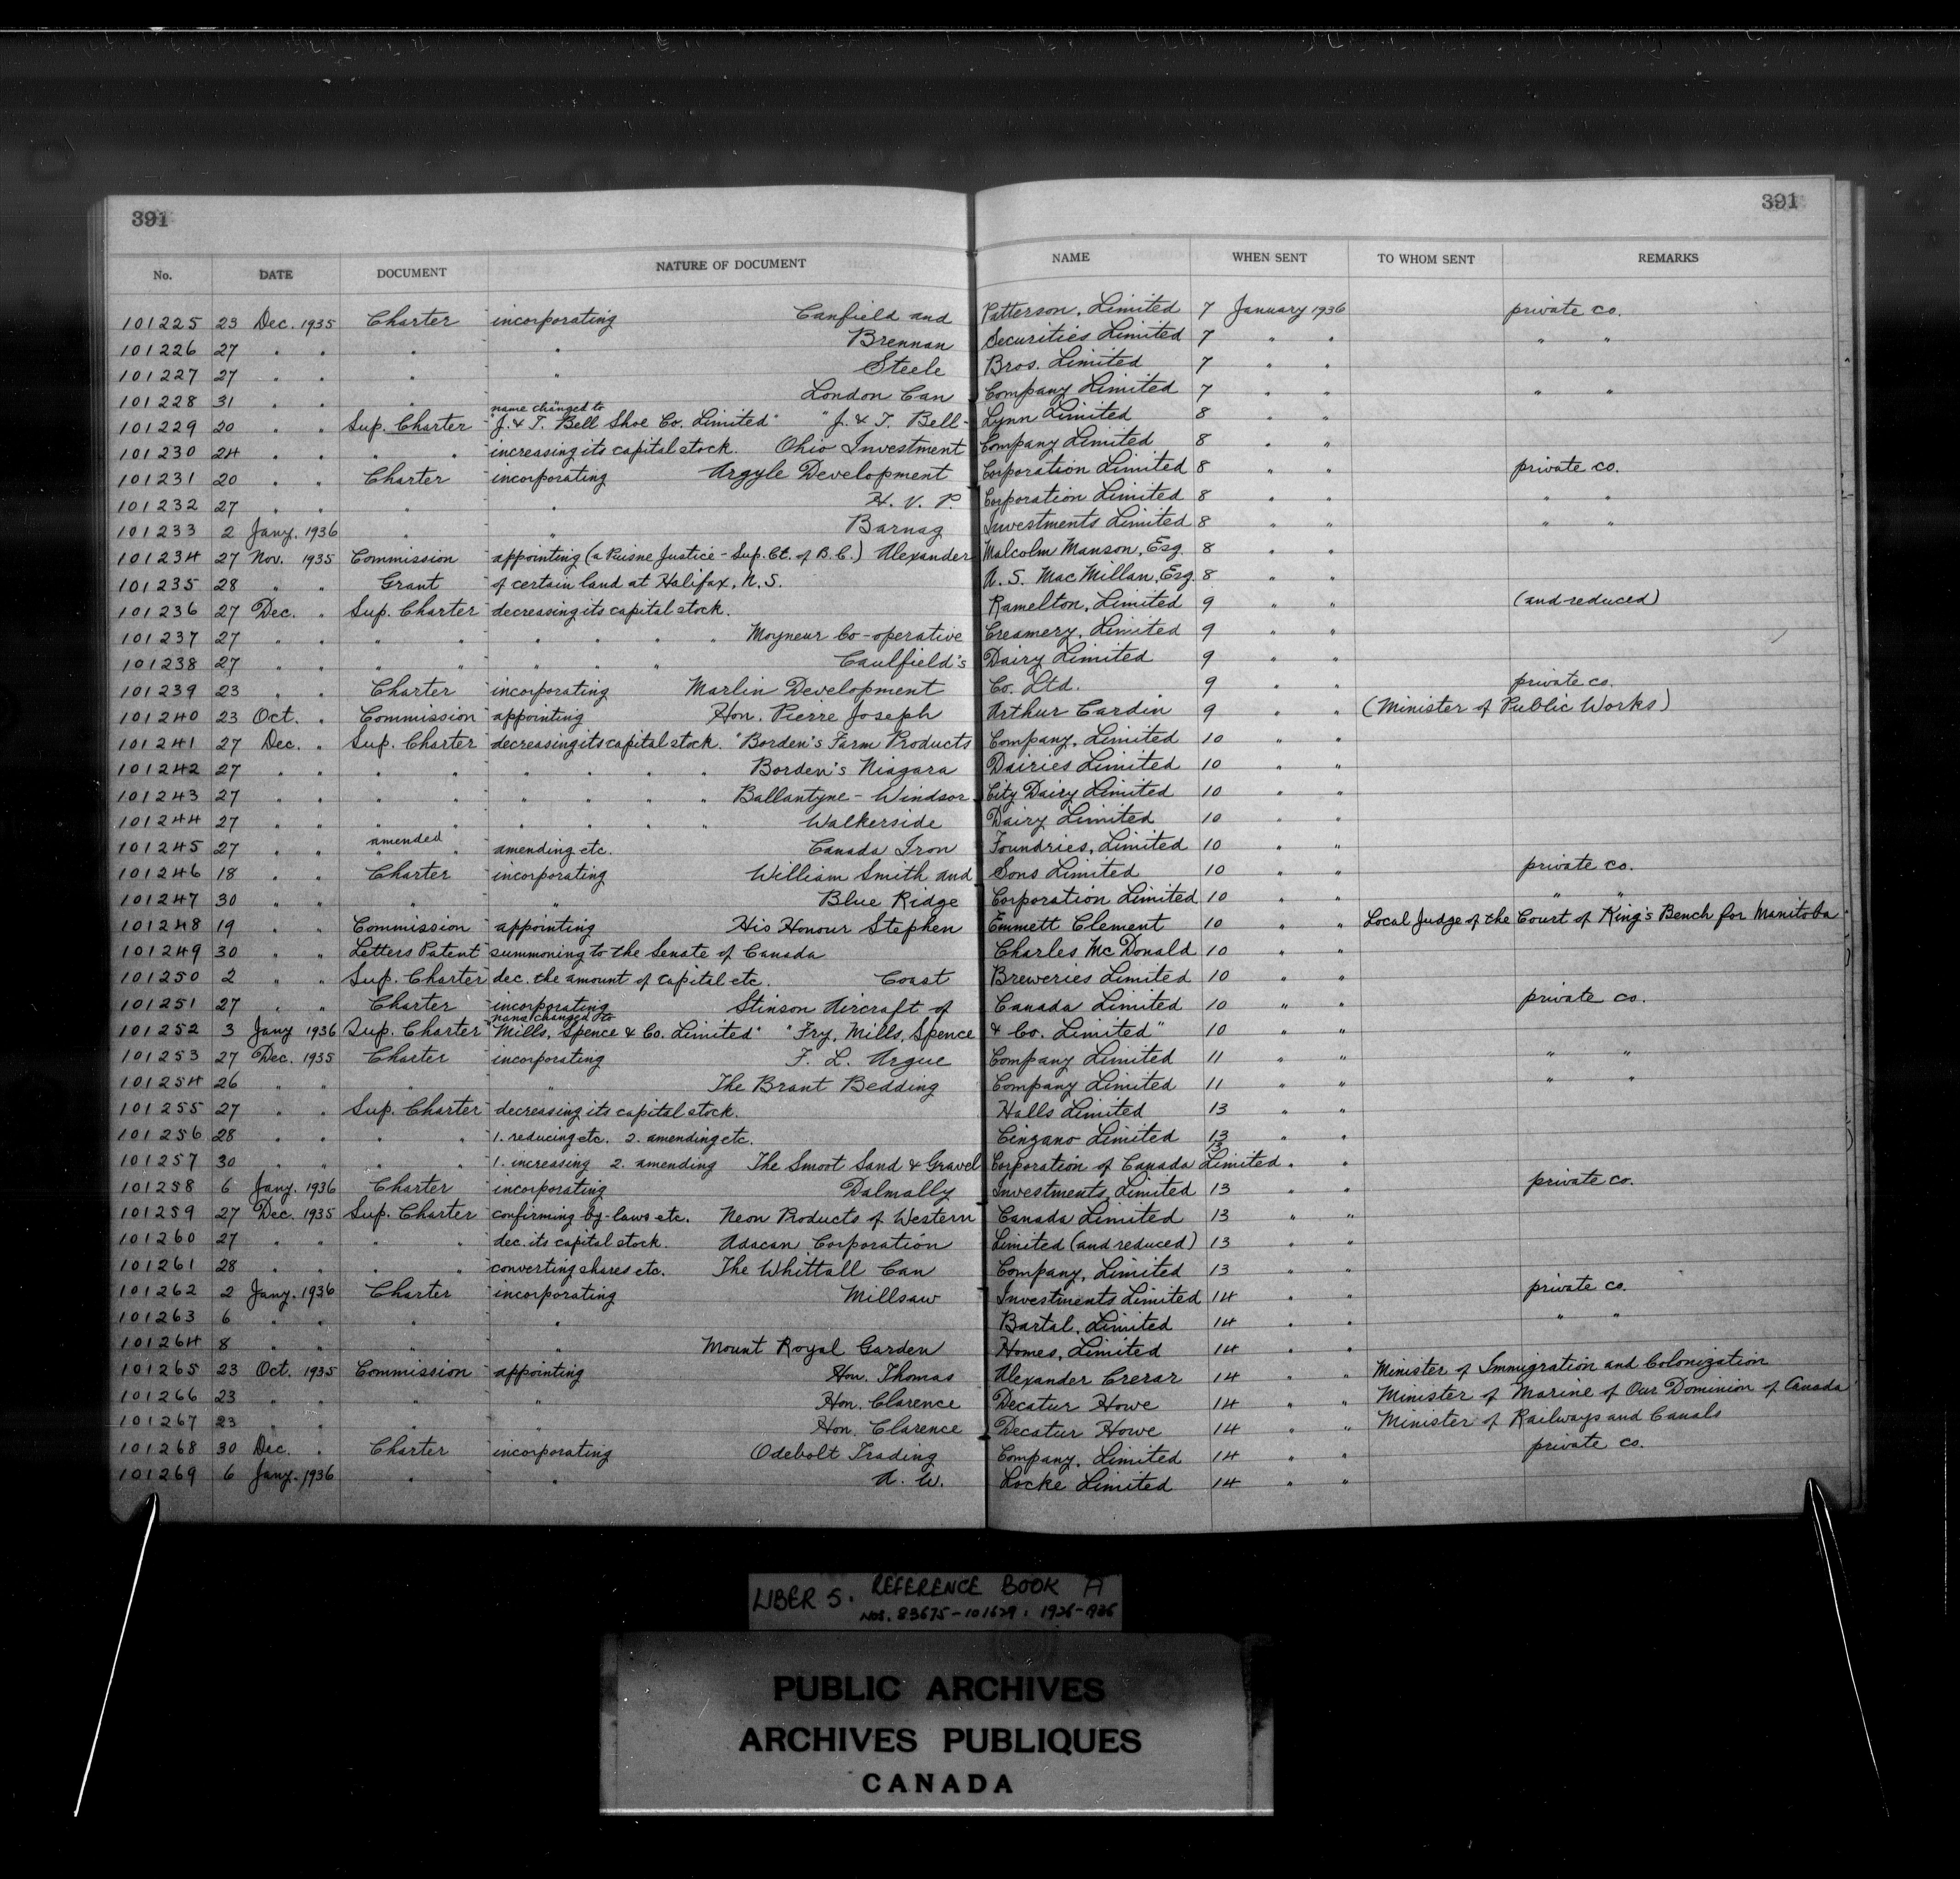 391 391
No. DATE DOCUMENT NATURE OF DOCUMENT NAME WHEN SENT TO WHOM SENT REMARKS
101225 23 Dec. 1935 Charter incorporating Canfield and Patterson, Limited 7 January 1936 private co.
101226 27 " " " " Brennan Securities Limited 7 " " " "
101227 27 " " " " Steele Bros. Limited 7 " "
101228 31 " " " London Can Company Limited 7 " " " "
name changed to
101229 20 " " Sup. Charter "J. & T. Bell Shoe Co. Limited" "J. & T. Bell- Lynn Limited 8 " "
101230 24 " " " " increasing its capital stock. Ohio Investment Company Limited 8 " "
101231 20 " " Charter incorporating Argyle Development Corporation Limited 8 " " private co.
101232 27 " " " " H. V. P. Corporation Limited 8 " " " "
101233 2 Jany. 1936 " " Barnag Investments Limited 8 " " " "
101234 27 Nov. 1935 Commission appointing (a Puisne Justice - Sup. Ct. of B.C.) Alexander Malcolm Manson, Esq. 8 " "
101235 28 " " Grant of certain land at Halifax, N.S. A. S. MacMillan, Esq. 8 " "
101236 27 Dec. " Sup. Charter decreasing its capital stock. Ramelton, Limited 9 " " (and reduced)
101237 27 " " " " " " " " Moyneur Co-operative Creamery, Limited 9 " "
101238 27 " " " " " " " Caulfield's Dairy Limited 9 " "
101239 23 " " Charter incorporating Marlin Development Co. Ltd. 9 " " private co.
101240 23 Oct. " Commission appointing Hon. Pierre Joseph Arthur Cardin 9 " " (Minister of Public Works)
101241 27 Dec. " Sup. Charter decreasing its capital stock. "Borden's Farm Products Company, Limited 10 " "
101242 27 " " " " " " " " Borden's Niagara Dairies Limited 10 " "
101243 27 " " " " " " " " Ballantyne - Windsor City Dairy Limited 10 " "
101244 27 " " " " " " " " Walkerside Dairy Limited 10 " "
amended
101245 27 " " " " amending etc. Canada Iron Foundries, Limited 10 " "
101246 18 " " Charter incorporating William Smith and Sons Limited 10 " " private co.
101247 30 " " " " Blue Ridge Corporation Limited 10 " " " "
101248 19 " " Commission appointing His Honour Stephen Emmett Clement 10 " " Local Judge of the Court of King's Bench for Manitoba.
101249 30 " " Letters Patent summoning to the Senate of Canada Charles McDonald 10 " "
101250 2 " " Sup. Charter dec. the amount of capital etc. Coast Breweries Limited 10 " "
101251 27 " " Charter incorporating Stinson Aircraft of Canada Limited 10 " " private co.
name changed to
101252 3 Jany 1936 Sup. Charter "Mills, Spence & Co. Limited" "Fry, Mills, Spence & Co. Limited" 10 " "
101253 27 Dec. 1935 Charter incorporating F. L. Argue Company Limited 11 " " " "
101254 26 " " " " The Brant Bedding Company Limited 11 " " " "
101255 27 " " Sup. Charter decreasing its capital stock. Halls Limited 13 " "
101256 28 " " " " 1. reducing etc. 2. amending etc. Cinzano Limited 13 " "
101257 30 " " " " 1. increasing 2. amending The Smoot Sand & Gravel Corporation of Canada Limited 13 " "
101258 6 Jany. 1936 Charter incorporating Dalmally Investments, Limited 13 " " private co.
101259 27 Dec. 1935 Sup. Charter confirming by-laws etc. Neon Products of Western Canada Limited 13 " "
101260 27 " " " " dec. its capital stock. Adacan Corporation Limited (and reduced) 13 " "
101261 28 " " " " converting shares etc. The Whittall Can Company, Limited 13 " "
101262 2 Jany. 1936 Charter incorporating Millsaw Investments Limited 14 " " private co.
101263 6 " " " " Bartal, Limited 14 " " " "
101264 8 " " " " Mount Royal Garden Homes, Limited 14 " "
101265 23 Oct. 1935 Commission appointing Hon. Thomas Alexander Crerar 14 " " Minister of Immigration and Colonization
101266 23 " " " " Hon. Clarence Decatur Howe 14 " " Minister of Marine of Our Dominion of Canada
101267 23 " " " " Hon. Clarence Decatur Howe 14 " " Minister of Railways and Canals
101268 30 Dec. " Charter incorporating Odebolt Trading Company, Limited 14 " " private co.
101269 6 Jany. 1936 " " A. W. Locke Limited 14 " "
LIBER 5. REFERENCE BOOK A
NOS. 83675-101629: 1926-1936
PUBLIC ARCHIVES
ARCHIVES PUBLIQUES
CANADA